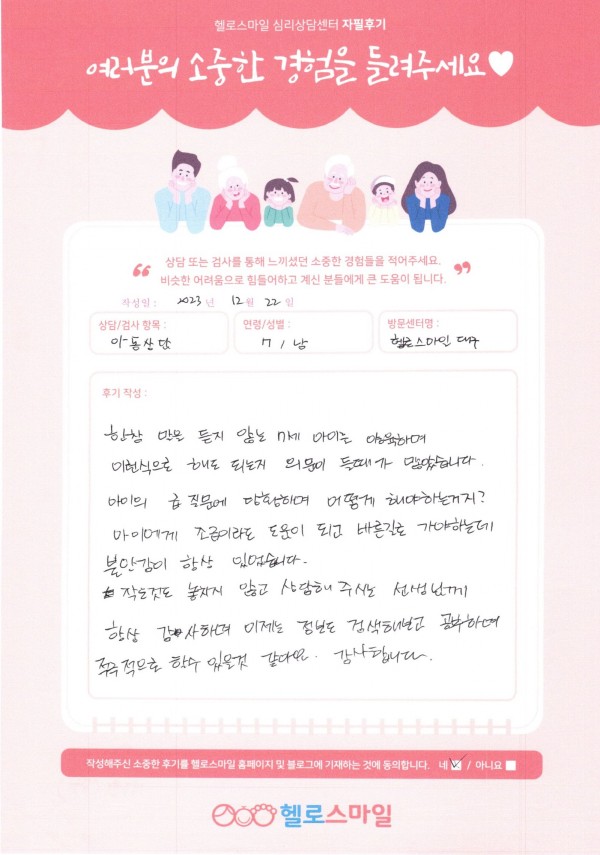 헬로스마일 심리상담센터 자필후기
여러분의 소중한 경험을 들려주세요♥
“ 상담 또는 검사를 통해 느끼셨던 소중한 경험들을 적어주세요.
비슷한 어려움으로 힘들어하고 계신 분들에게 큰 도움이 됩니다. ”
작성일 : 2023 년 12 월 22 일
상담/검사 항목 :
아동상담
연령/성별 :
7 / 남
방문센터명 :
헬로스마일 대구
후기 작성 :
한참 말을 듣지 않는 7세 아이를 양육하며
이런식으로 해도 되는지 의문이 들때가 많았습니다.
아이의 급 질문에 당황하며 어떻게 해야하는거지?
아이에게 조금이라도 도움이 되고 바른길로 가야하는데
불안감이 항상 있었습니다.
작은것도 놓치지 않고 상담해 주시는 선생님께
항상 감사하며 이제는 정보도 검색해보고 공부하며
주축적으로 할수 있을것 같아요. 감사합니다.
작성해주신 소중한 후기를 헬로스마일 홈페이지 및 블로그에 기재하는 것에 동의합니다. 네 ☑ / 아니요 ☐
헬로스마일